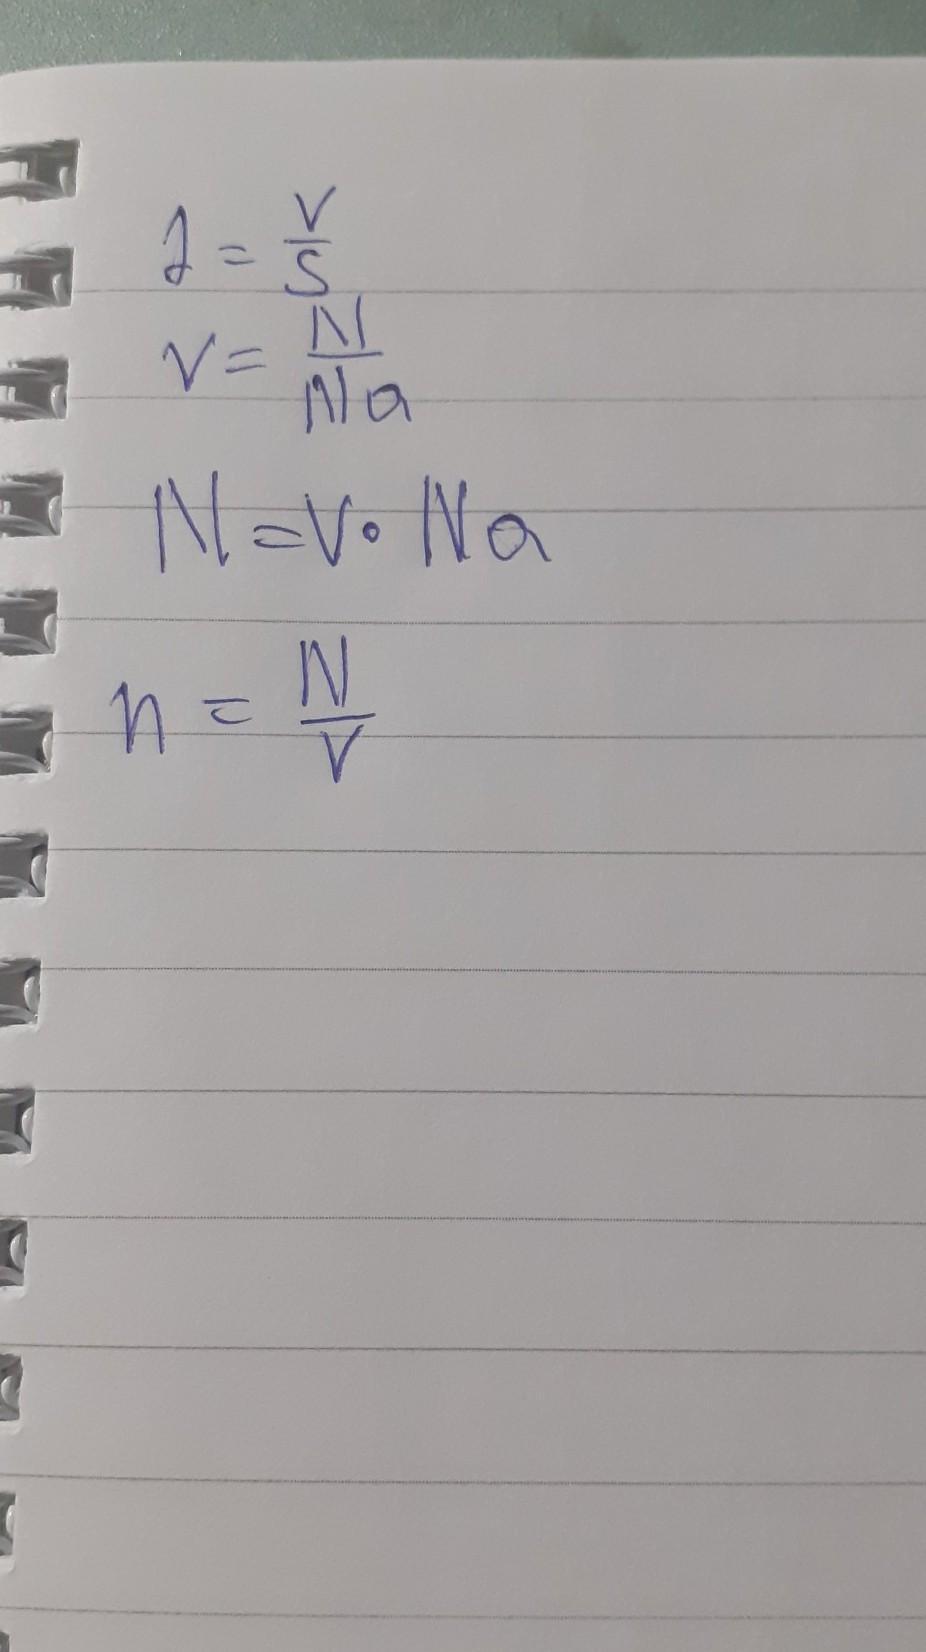 d = V/S
ν = N/Na
N = ν · Na
n = N/V